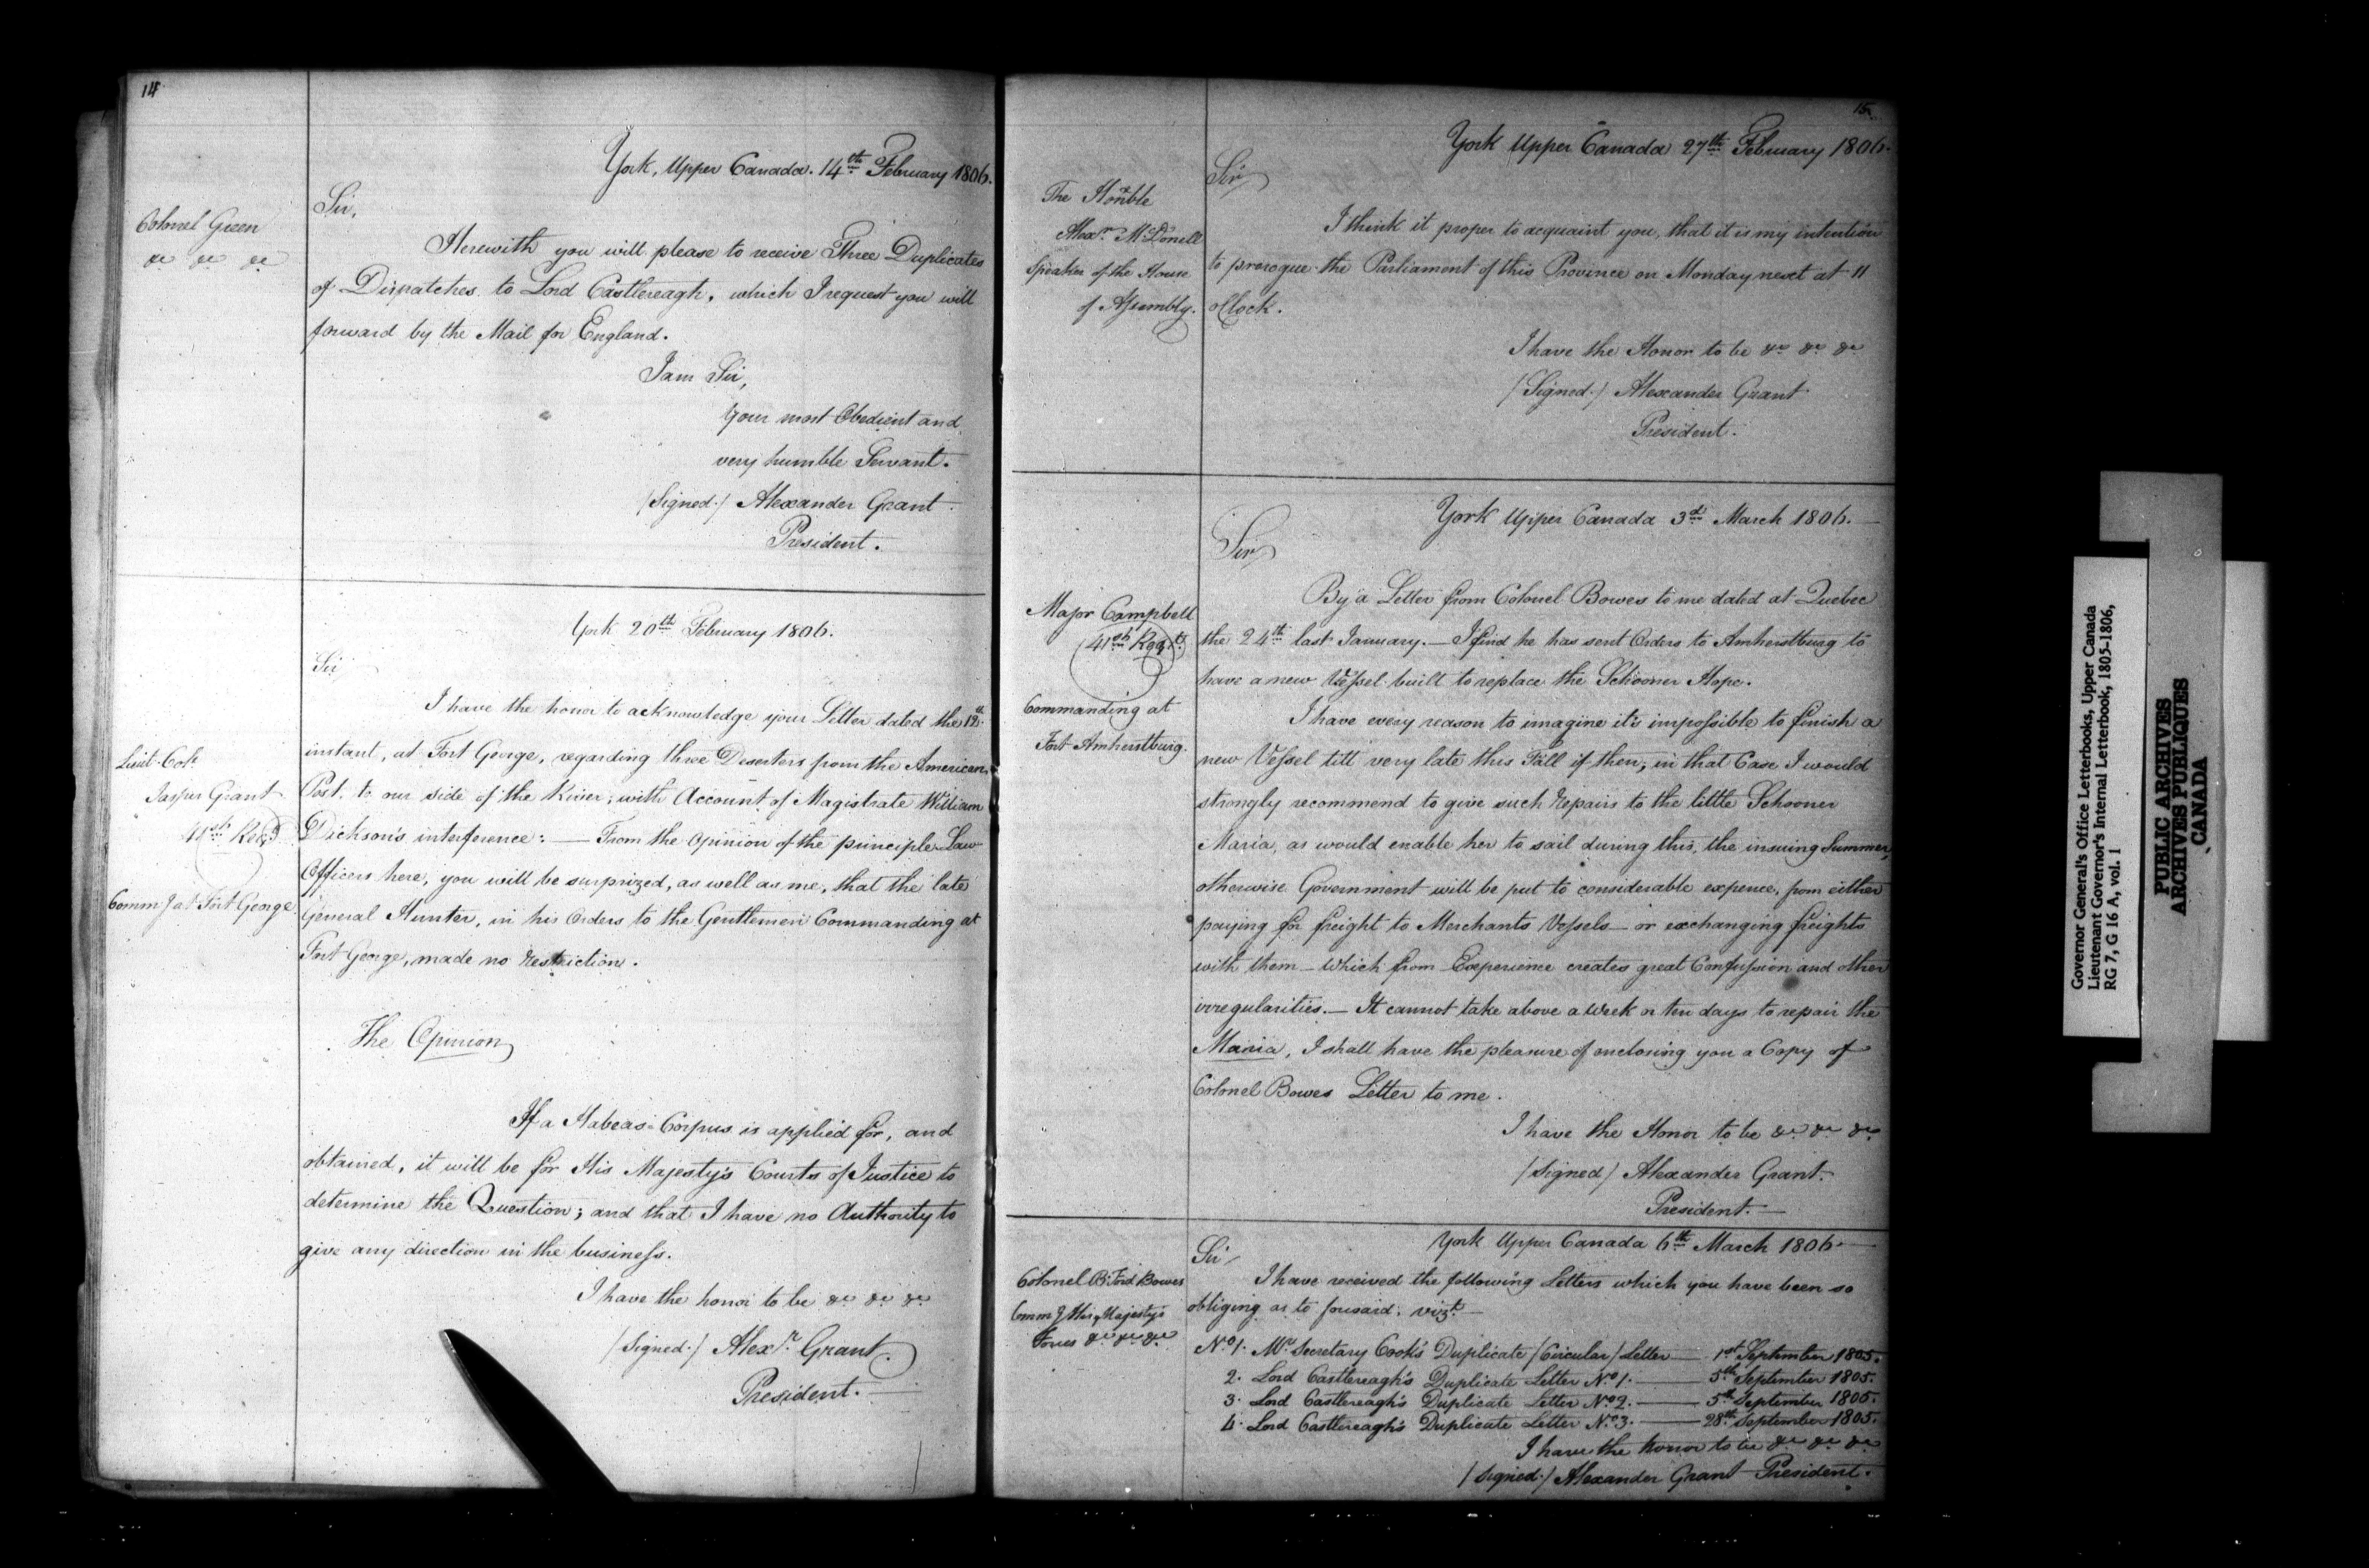 14
York, Upper Canada. 14th February 1806.
Colonel Green
&c &c &c
Sir,
Herewith you will please to receive Three Duplicates
of Dispatches to Lord Castlereagh, which I request you will
forward by the Mail for England.
I am Sir,
Your most Obedient and
very humble Servant.
/Signed./ Alexander Grant
President.
York 20th February 1806.
Sir
Lieut. Col.
Jasper Grant
41st Regt
Comm.g at Fort George
I have the honor to acknowledge your Letter dated the 12th
instant, at Fort George, regarding three Deserters from the American
Post, to our side of the River; with Account of Magistrate William
Dickson's interference: — From the Opinion of the principle Law
Officers here, you will be surprized, as well as me, that the late
General Hunter, in his Orders to the Gentlemen Commanding at
Fort George, made no Restriction.
The Opinion
If a Habeas Corpus is applied for, and
obtained, it will be for His Majesty's Courts of Justice to
determine the Question; and that I have no Authority to
give any direction in the business.
I have the honor to be &c &c &c
/Signed./ Alexr. Grant.
President. —
15
York Upper Canada 27th February 1806.
The Honble
Alexr. McDonell
Speaker of the House
of Assembly.
Sir
I think it proper to acquaint you, that it is my intention
to prorogue the Parliament of this Province on Monday next at 11
oClock.
I have the Honor to be &c &c &c
/Signed./ Alexander Grant
President.
York Upper Canada 3d March 1806. —
Sir
Major Campbell
41st Regt.
Commanding at
Fort Amherstburg.
By a Letter from Colonel Bowes to me dated at Quebec
the 24th last January. — I find he has sent Orders to Amherstburg to
have a new Vessel built to replace the Schooner Hope.
I have every reason to imagine its impossible to finish a
new Vessel till very late this Fall if then; in that Case I would
strongly recommend to give such Repairs to the little Schooner
Maria, as would enable her to sail during this, the insuing Summer,
otherwise Government will be put to considerable expence, from either
paying for freight to Merchants Vessels — or exchanging freights
with them — Which from Experience creates great Confussion and other
irregularities. — It cannot take above a Week or ten days to repair the
Maria, I shall have the pleasure of enclosing you a Copy of
Colonel Bowes Letter to me.
I have the Honor to be &c &c &c
/Signed/ Alexander Grant.
President. —
York Upper Canada 6th March 1806. —
Colonel B: Ford Bowes
Comm.g His Majesty's
Forces &c &c &c.
Sir
I have received the following Letters which you have been so
obliging as to forward. vizt. —
No. 1. Mr. Secretary Cook's Duplicate /Circular/ Letter — 1st September 1805.
2. Lord Castlereagh's Duplicate Letter No. 1. — 5th September 1805.
3. Lord Castlereagh's Duplicate Letter No. 2. — 5th September 1805.
4. Lord Castlereagh's Duplicate Letter No. 3. — 28th September 1805.
I have the honor to be &c &c &c
/Signed./ Alexander Grant President.
Governor General's Office Letterbooks, Upper Canada
Lieutenant Governor's Internal Letterbook, 1805-1806,
RG 7, G 16 A, vol. 1
PUBLIC ARCHIVES
ARCHIVES PUBLIQUES
CANADA